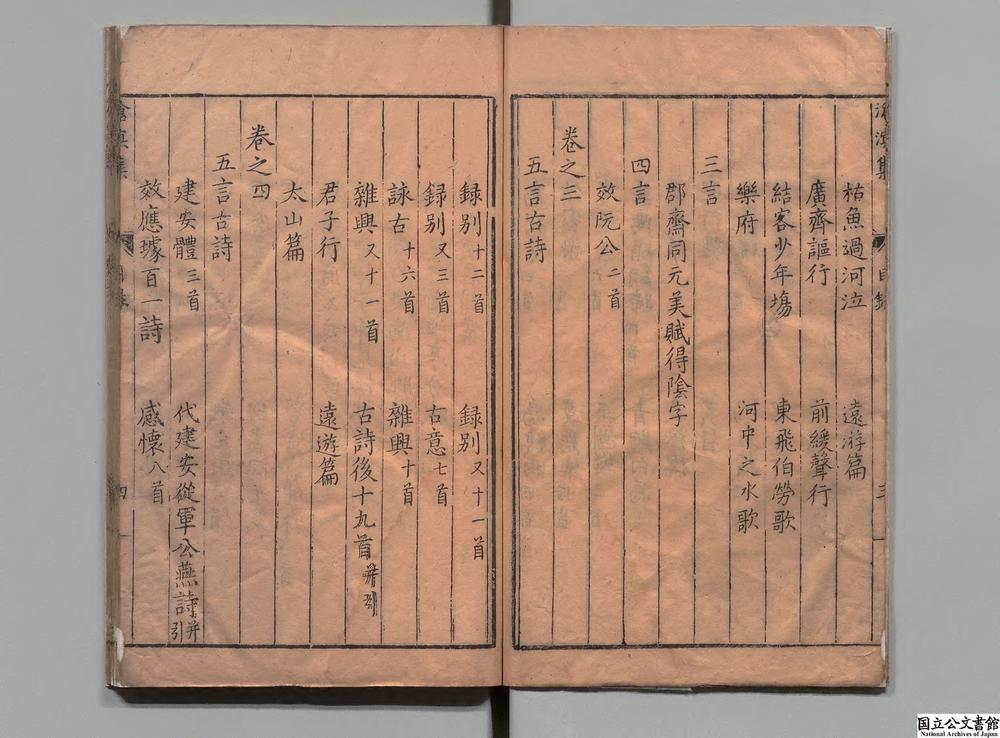 枯魚過河泣 遠游篇
廣齊謳行 前緩聲行
結客少年塲 東飛伯勞歌
樂府 河中之水歌
三言
郡齋同元美賦得陰字
四言
效阮公二首
卷之三
五言古詩
録别十二首 録别又十一首
録别又三首 古意七首
詠古十六首 雜興十首
雜興又十一首 古詩後十九首并引
君子行 遠遊篇
太山篇
卷之四
五言古詩
建安體三首 代建安從軍公燕詩并引
效應璩百一詩 感懷八首
目録 四
国立公文書館
National Archives of Japan